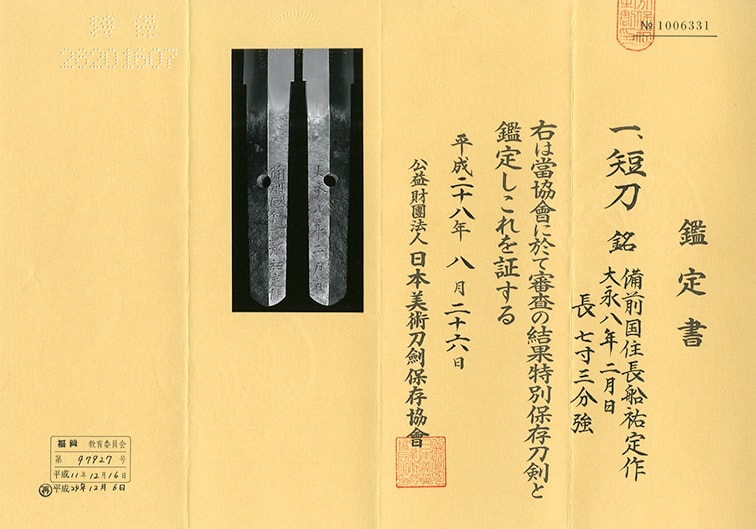 № 1006331
鑑定書
一、短刀 銘 備前国住長船祐定作
大永八年二月日
長 七寸三分強
右は當協會に於て審査の結果特別保存刀剣と
鑑定しこれを証する
平成二十八年 八月二十六日
公益財團法人 日本美術刀劍保存協會
26201607
福岡 教育委員会
第 97927 号
平成11年12月16日
再 平成29年12月6日